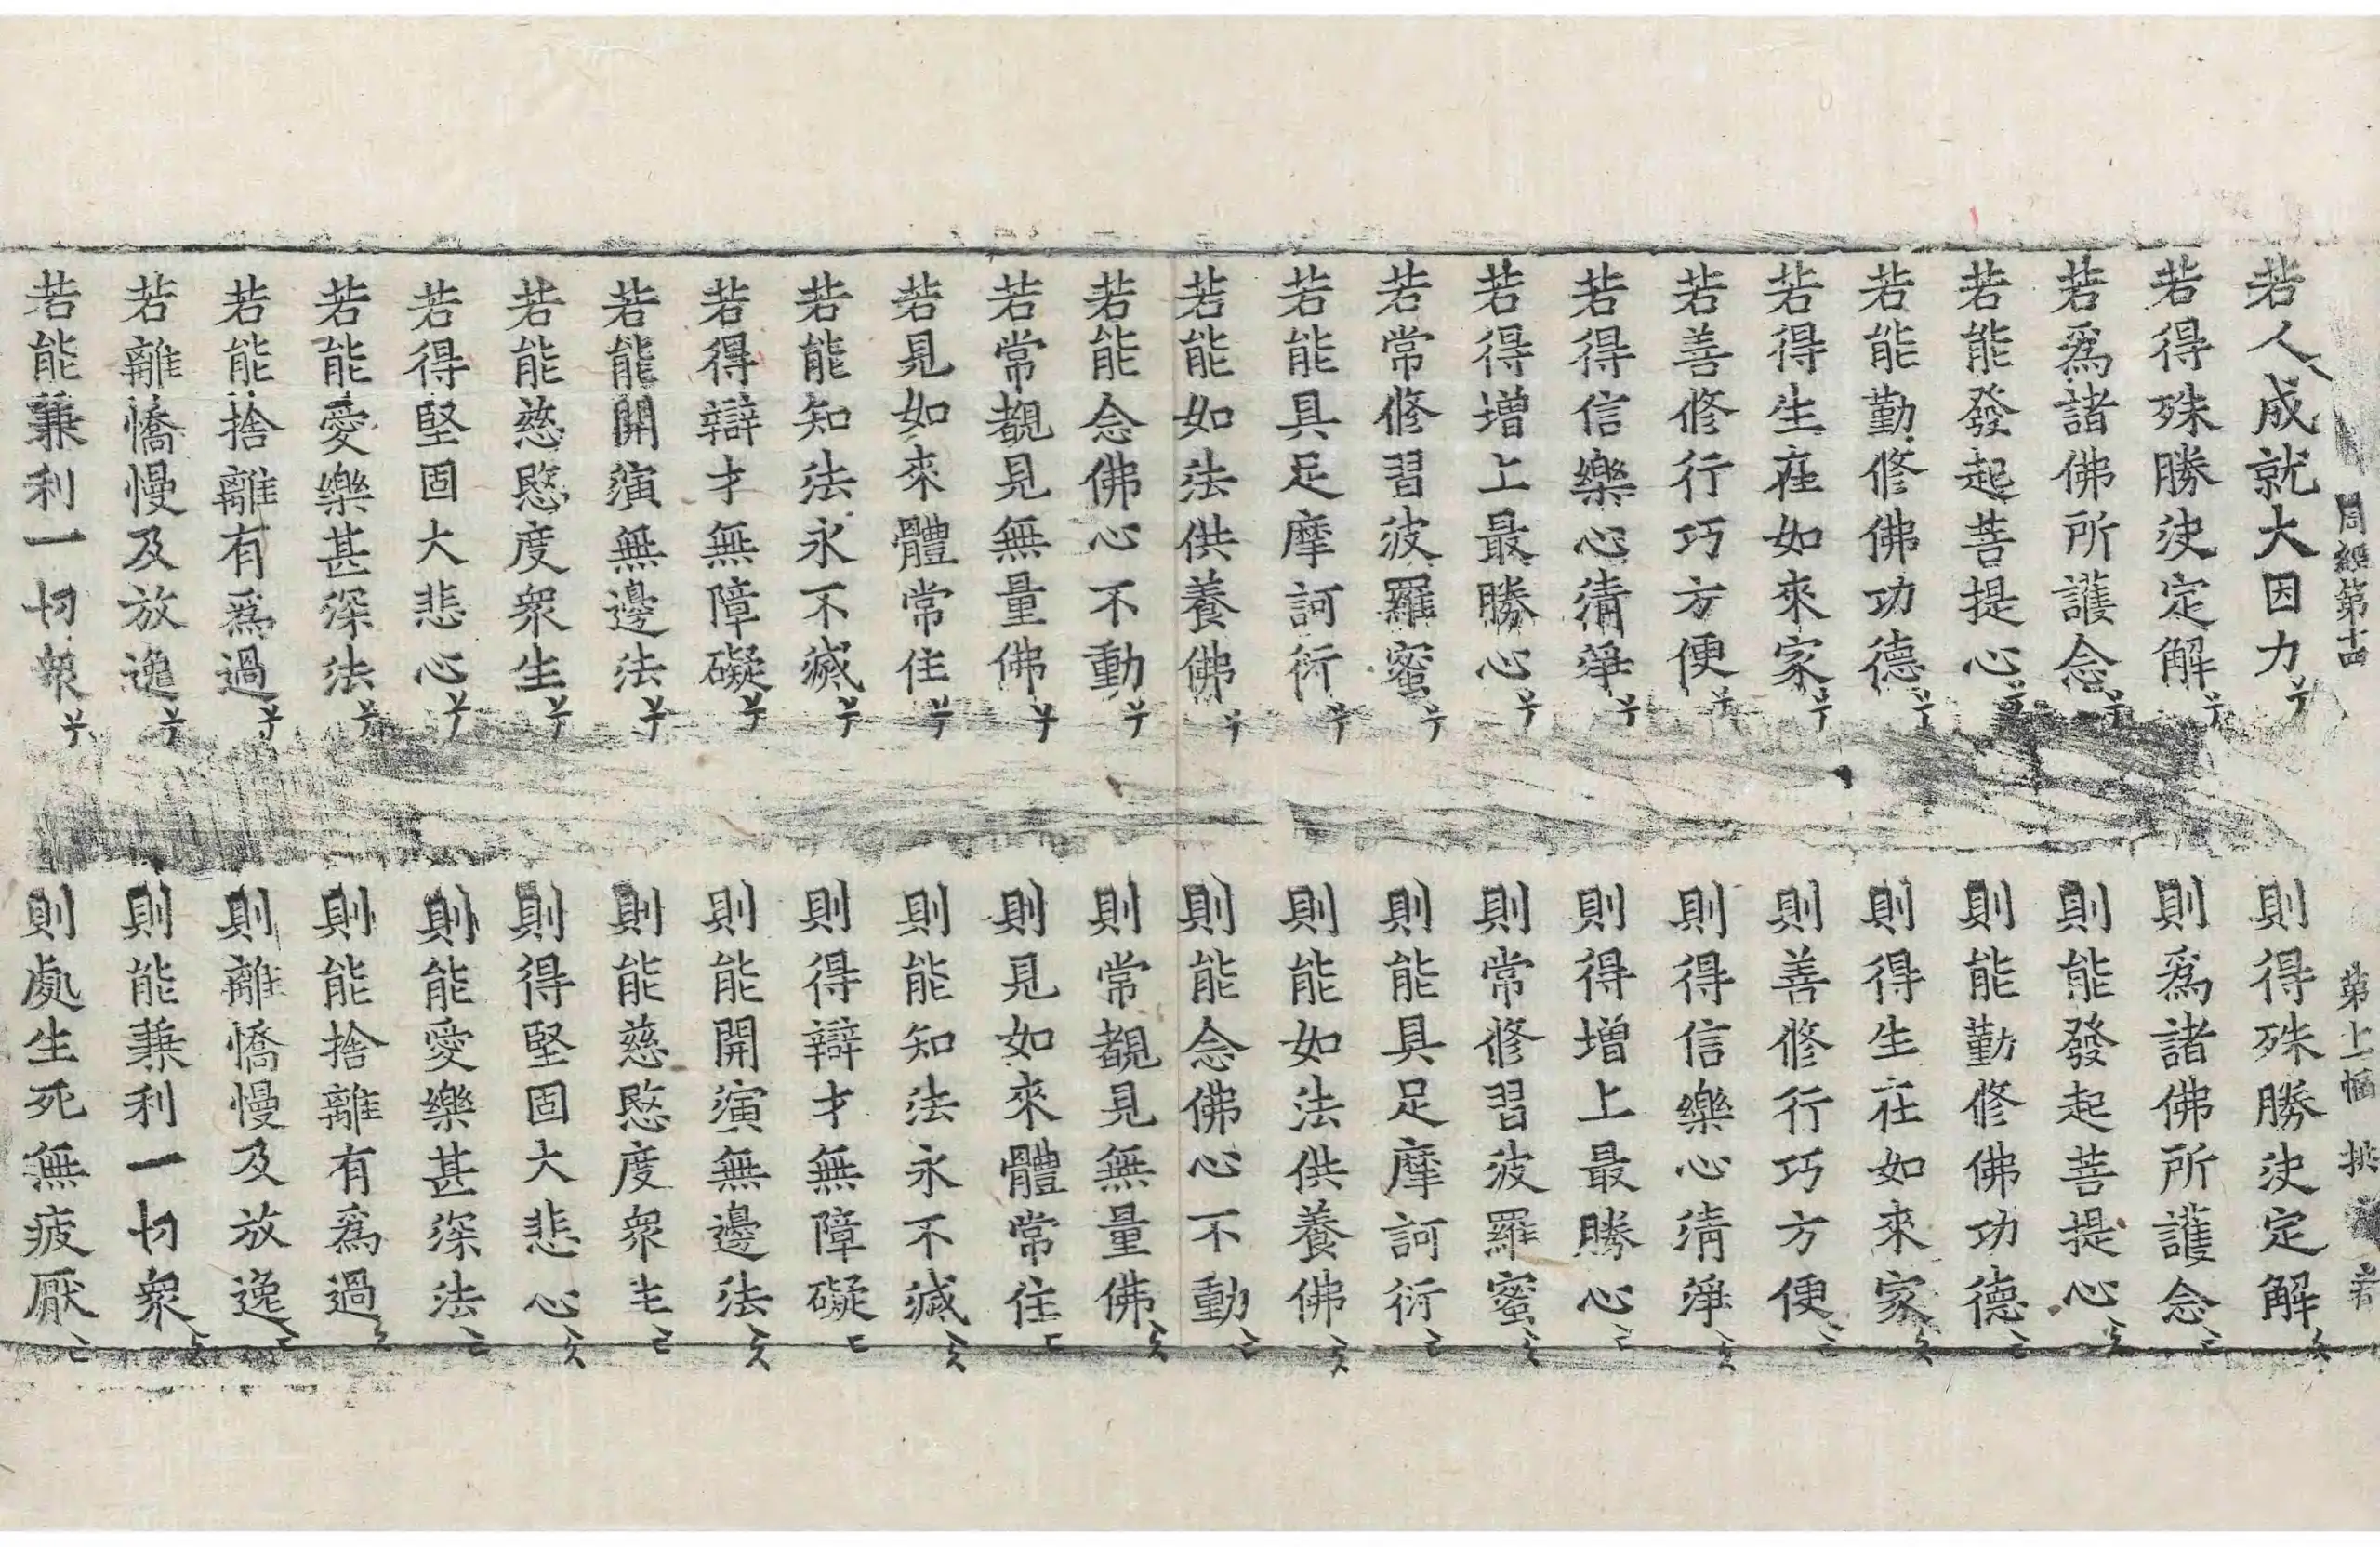 周經第十四 第上幅
若人成就大因力 則得殊勝決定解
若得殊勝決定解 則爲諸佛所護念
若爲諸佛所護念 則能發起菩提心
若能發起菩提心 則能勤修佛功德
若能勤修佛功德 則得生在如來家
若得生在如來家 則善修行巧方便
若善修行巧方便 則得信樂心清淨
若得信樂心清淨 則得增上最勝心
若得增上最勝心 則常修習波羅蜜
若常修習波羅蜜 則能具足摩訶衍
若能具足摩訶衍 則能如法供養佛
若能如法供養佛 則能念佛心不動
若能念佛心不動 則常覩見無量佛
若常覩見無量佛 則見如來體常住
若見如來體常住 則能知法永不滅
若能知法永不滅 則得辯才無障礙
若得辯才無障礙 則能開演無邊法
若能開演無邊法 則能慈愍度衆生
若能慈愍度衆生 則得堅固大悲心
若得堅固大悲心 則能愛樂甚深法
若能愛樂甚深法 則能捨離有爲過
若能捨離有爲過 則離憍慢及放逸
若離憍慢及放逸 則能兼利一切衆
若能兼利一切衆 則處生死無疲厭